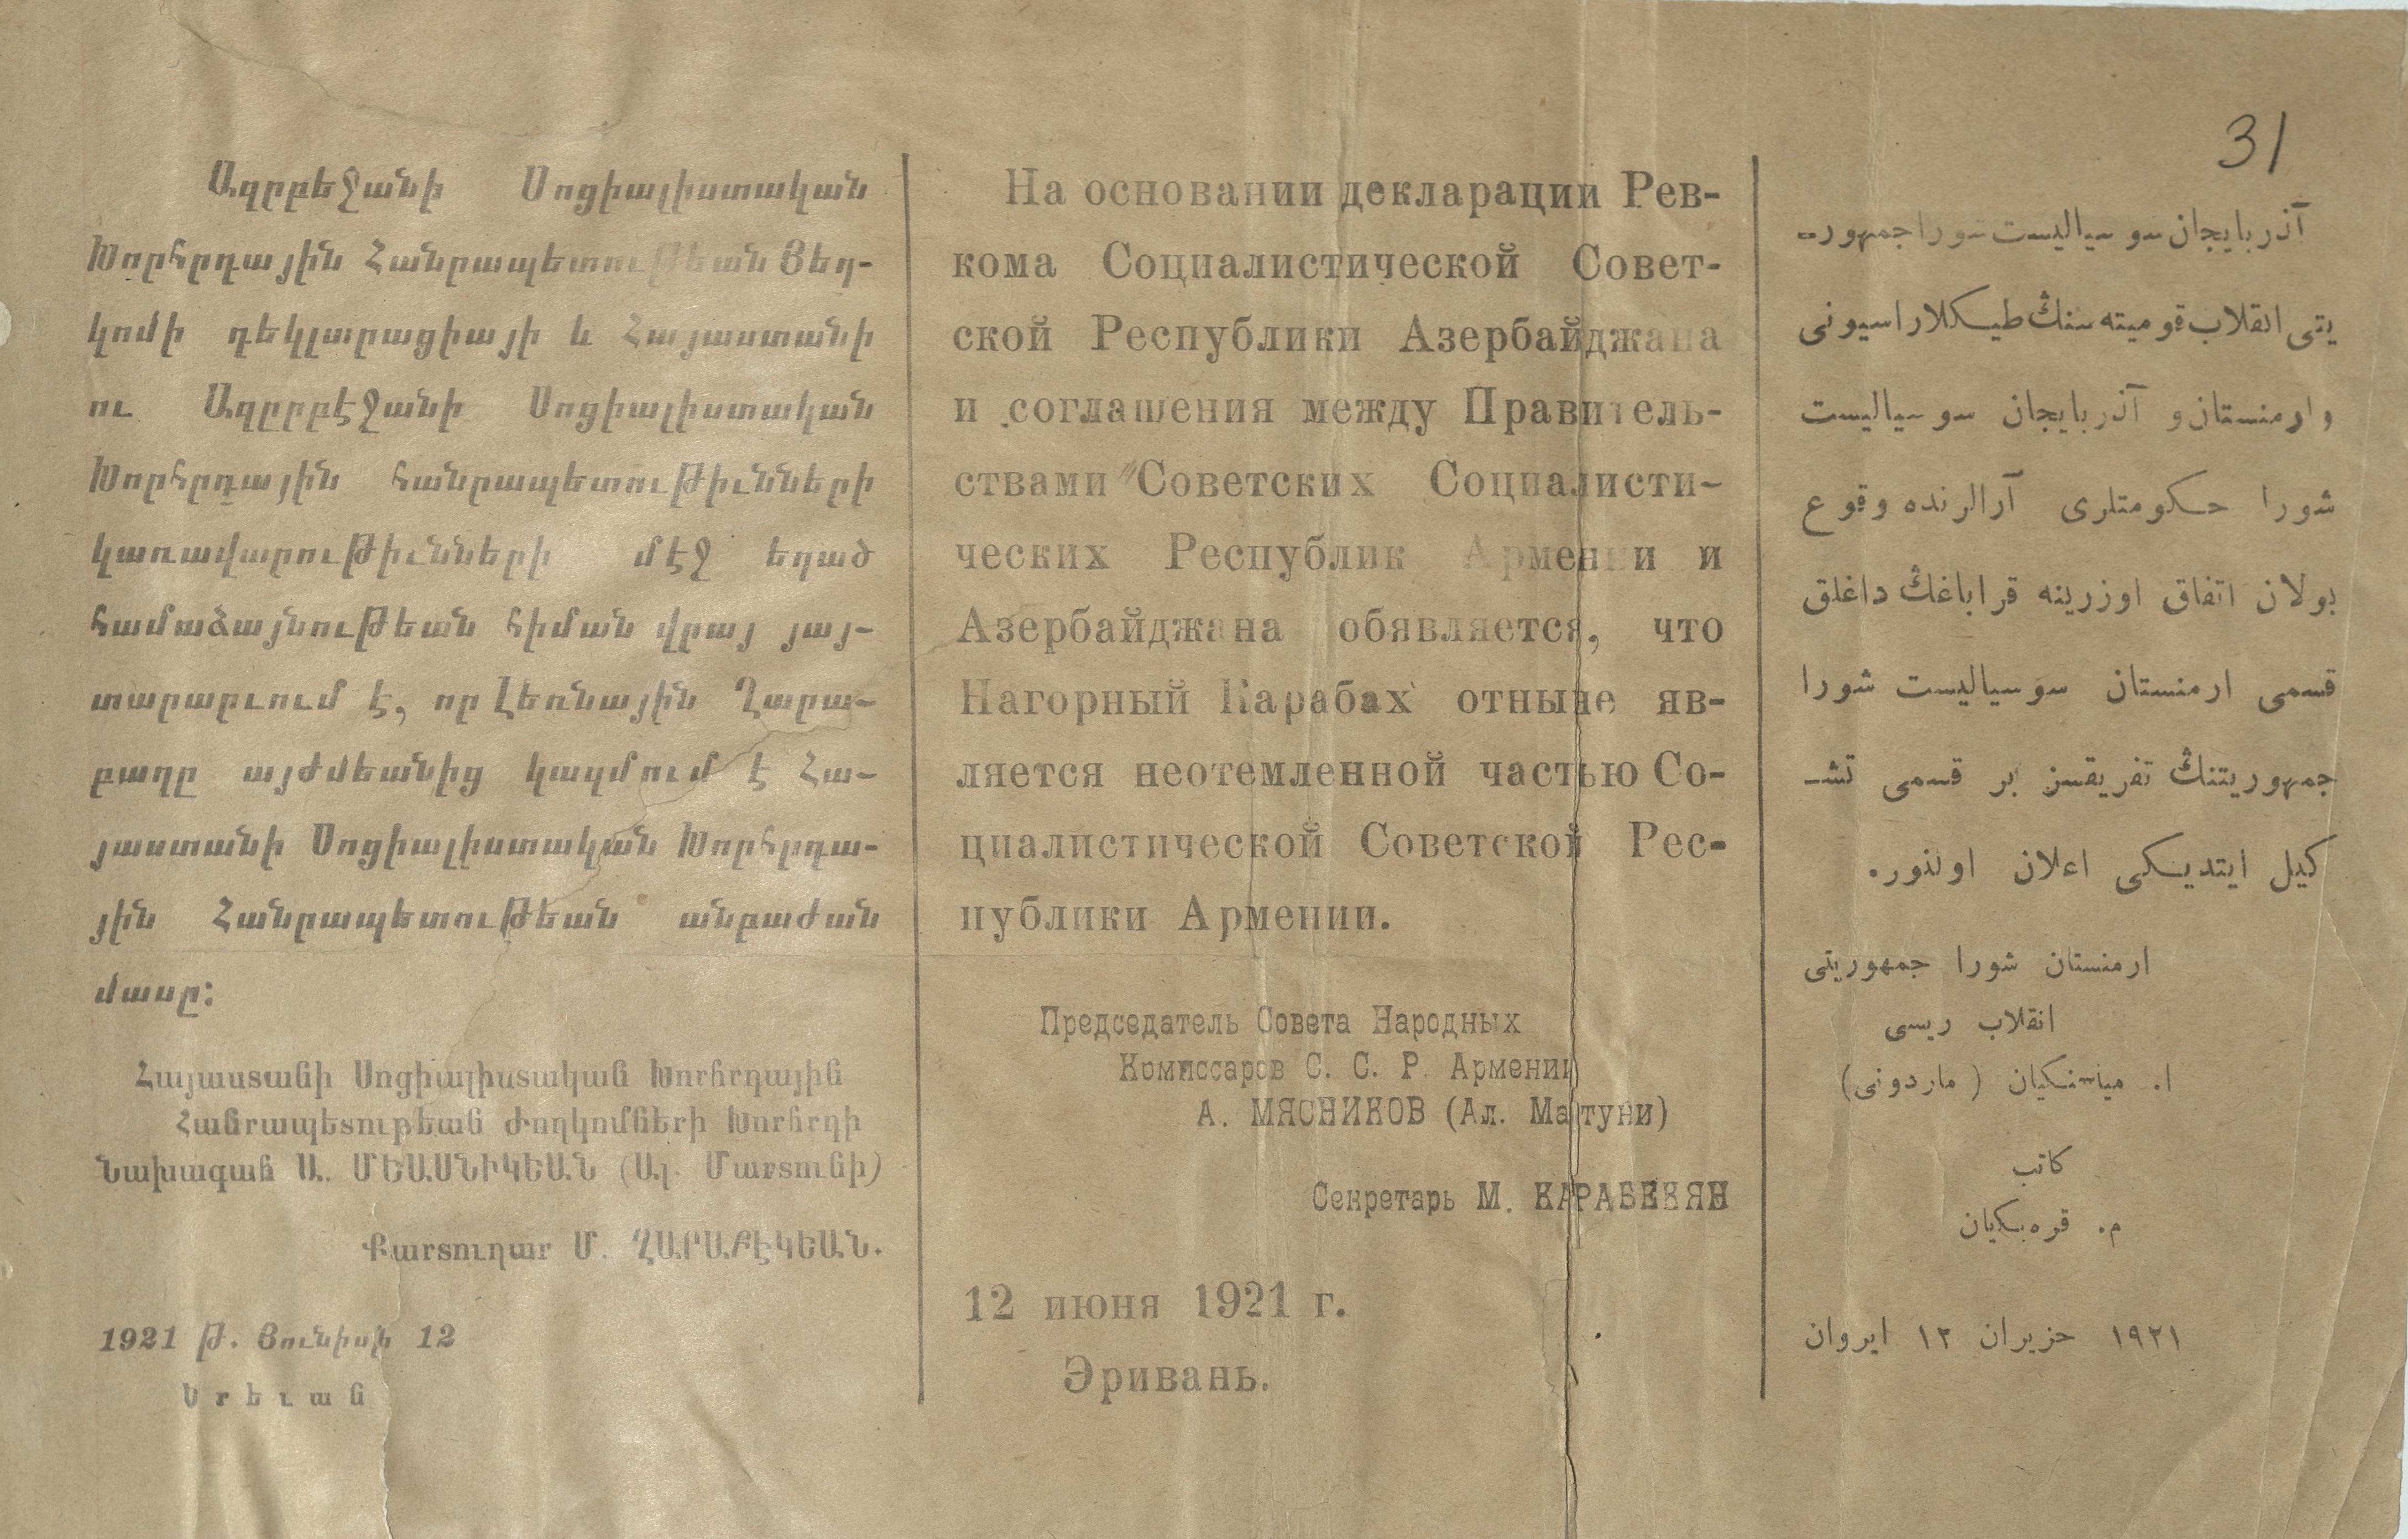 31
Ադրբեջանի Սոցիալիստական
Խորհրդային Հանրապետութեան Յեղ-
կոմի դեկլարացիայի և Հայաստանի
ու Ադըրբէջանի Սոցիալիստական
Խորհրդային հանրապետութիւնների
կառավարութիւնների մէջ եղած
համաձայնութեան հիման վրայ յայ-
տարարւում է, որ Լեռնային Ղարա-
բաղը այժմեանից կազմում է Հա-
յաստանի Սոցիալիստական Խորհրդա-
յին Հանրապետութեան անբաժան
մասը:
Հայաստանի Սոցիալիստական Խորհրդային
Հանրապետութեան Ժողկոմների Խորհրդի
Նախագահ Ա. ՄԵԱՍՆԻԿԵԱՆ (Ալ. Մարտունի)
Քարտուղար Մ. ՂԱՐԱԲԷԿԵԱՆ.
1921 թ. Յունիսի 12
Երեւան
На основании декларации Рев-
кома Социалистической Совет-
ской Республики Азербайджана
и соглашения между Правитель-
ствами Советских Социалисти-
ческих Республик Армении и
Азербайджана обявляется, что
Нагорный Карабах отныне яв-
ляется неотемленной частью Со-
циалистической Советской Рес-
публики Армении.
Председатель Совета Народных
Комиссаров С. С. Р. Армении
А. МЯСНИКОВ (Ал. Мартуни)
Секретарь М. КАРАБЕКЯН
12 июня 1921 г.
Эривань.
آذربایجان سوسیالیست شورا جمهوره
یتی انقلاب قومیته سنڭ طیكلاراسیونی
و ارمنستان و آذربایجان سوسیالیست
شورا حكومتلری آرالرنده وقوع
بولان اتفاق اوزرینه قراباغڭ داغلق
قسمی ارمنستان سوسیالیست شورا
جمهوریتنڭ تفریقسز بر قسمی تشـ
كیل ایتدیكی اعلان اولنور.
ارمنستان شورا جمهوریتی
انقلاب ریسی
ا. میاسنكیان (ماردونی)
كاتب
م. قره‌بكیان
۱۹۲۱ حزیران ۱۲ ایروان